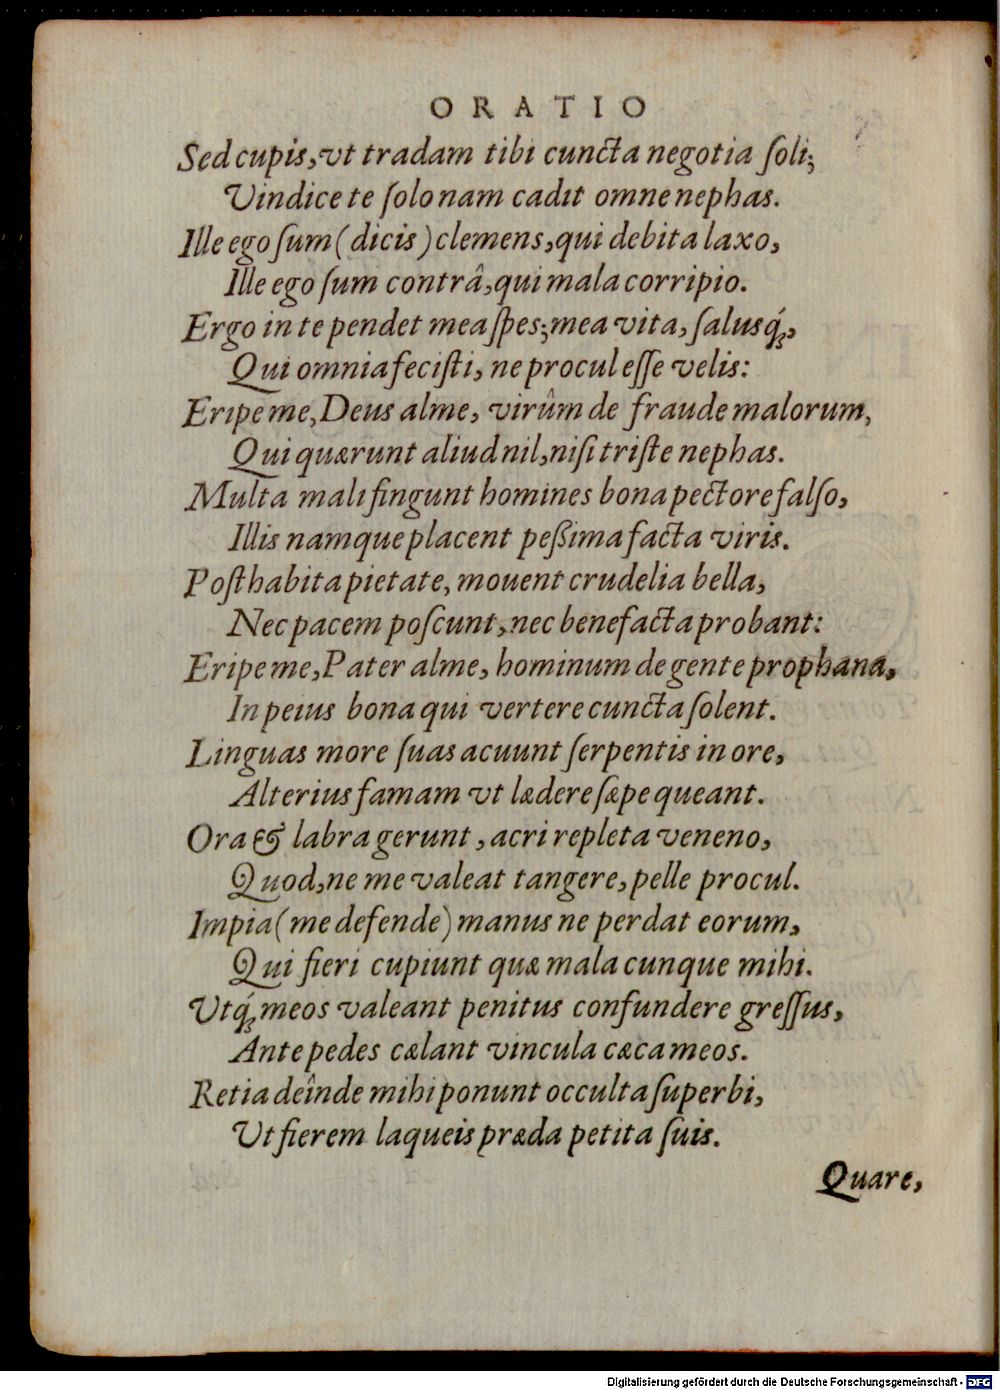 ORATIO
Sed cupis, vt tradam tibi cuncta negotia ſoli;
Vindice te ſolo nam cadit omne nephas.
Ille ego ſum (dicis) clemens, qui debita laxo,
Ille ego ſum contrâ, qui mala corripio.
Ergo in te pendet mea ſpes; mea vita, ſalusq́ꝫ,
Qui omnia feciſti, ne procul eſſe velis:
Eripe me, Deus alme, virûm de fraude malorum,
Qui quærunt aliud nil, niſi triſte nephas.
Multa mali fingunt homines bona pectore falſo,
Illis namque placent peßima facta viris.
Poſthabita pietate, mouent crudelia bella,
Nec pacem poſcunt, nec benefacta probant:
Eripe me, Pater alme, hominum de gente prophana,
In peius bona qui vertere cuncta ſolent.
Linguas more ſuas acuunt ſerpentis in ore,
Alterius famam vt lædere ſæpe queant.
Ora & labra gerunt, acri repleta veneno,
Quod, ne me valeat tangere, pelle procul.
Impia (me defende) manus ne perdat eorum,
Qui fieri cupiunt quæ mala cunque mihi.
Vtq́ꝫ meos valeant penitus confundere greſſus,
Ante pedes cælant vincula cæca meos.
Retia deînde mihi ponunt occulta ſuperbi,
Vt fierem laqueis præda petita ſuis.
Quare,
Digitalisierung gefördert durch die Deutsche Forschungsgemeinschaft - DFG